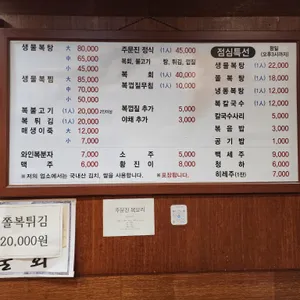 생물복탕 大 80,000
中 65,000
小 45,000
생물복찜 大 85,000
中 70,000
小 50,000
복불고기 (1人) 20,000
복튀김 (1人) 20,000
매생이죽 大 12,000
小 7,000
와인복분자 7,000
맥주 6,000
주문진 정식 (1人) 45,000
복회, 불고기 탕, 튀김, 껍질
복회 40,000
복껍질무침 (1人) 10,000
복껍질 추가 5,000
야채 추가 3,000
소주 5,000
황진이 8,000
점심특선 평일 (오후3시까지)
생물복탕 (1人) 22,000
쫄복탕 (1人) 18,000
냉동복탕 (1人) 12,000
복칼국수 (1人) 10,000
칼국수사리 5,000
볶음밥 3,000
공기밥 1,000
백세주 9,000
청하 6,000
히레주(1잔) 7,000
※ 저희 업소에서는 국내산 김치, 쌀을 사용합니다. ※포장됩니다.
쫄복튀김
20,000원
회